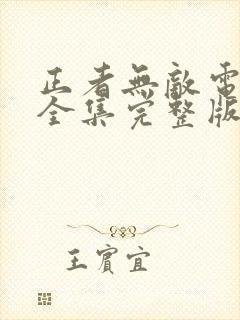 正者無敵電
全集完整版
王賓宜